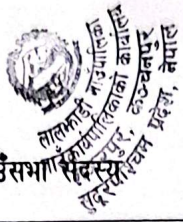 लालझाडी गाउँपालिका
गाउँ कार्यपालिकाको कार्यालय
कञ्चनपुर
सुदूरपश्चिम प्रदेश, नेपाल
उँसभा सदस्य